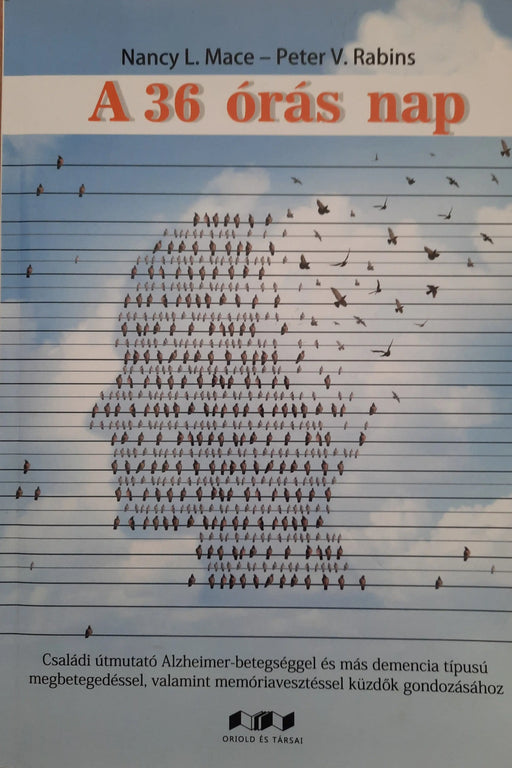 Nancy L. Mace – Peter V. Rabins
A 36 órás nap
Családi útmutató Alzheimer-betegséggel és más demencia típusú
megbetegedéssel, valamint memóriavesztéssel küzdők gondozásához
ORIOLD ÉS TÁRSAI